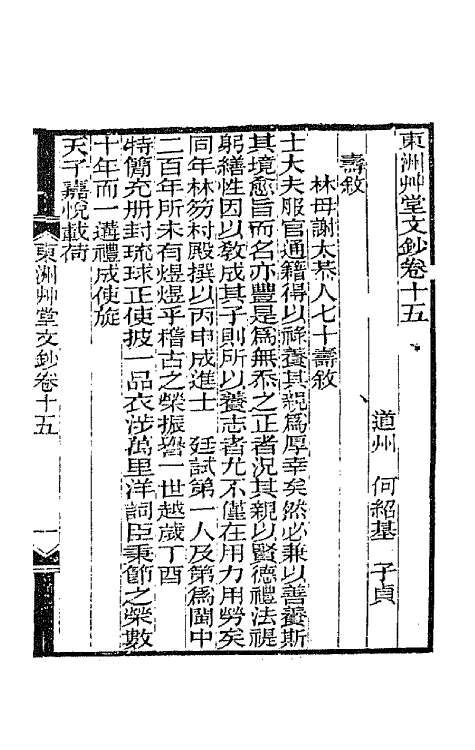 東洲艸堂文鈔卷十五
道州 何紹基 子貞
壽敘
林母謝太恭人七十壽敘
士大夫服官通籍得以祿養其親爲厚幸矣然必兼以善養斯
其境愈旨而名亦豐是爲無忝之正者況其親以賢德禮法禔
躬繕性因以敎成其子則所以養志者尤不僅在用力用勞矣
同年林勿村殿撰以丙申成進士 廷試第一人及第爲閩中
二百年所未有煜煜乎稽古之榮振譽一世越歲丁酉
特簡充册封琉球正使披一品衣涉萬里洋詞臣秉節之榮數
十年而一遘禮成使旋
天子嘉悅載荷
東洲艸堂文鈔卷十五
一